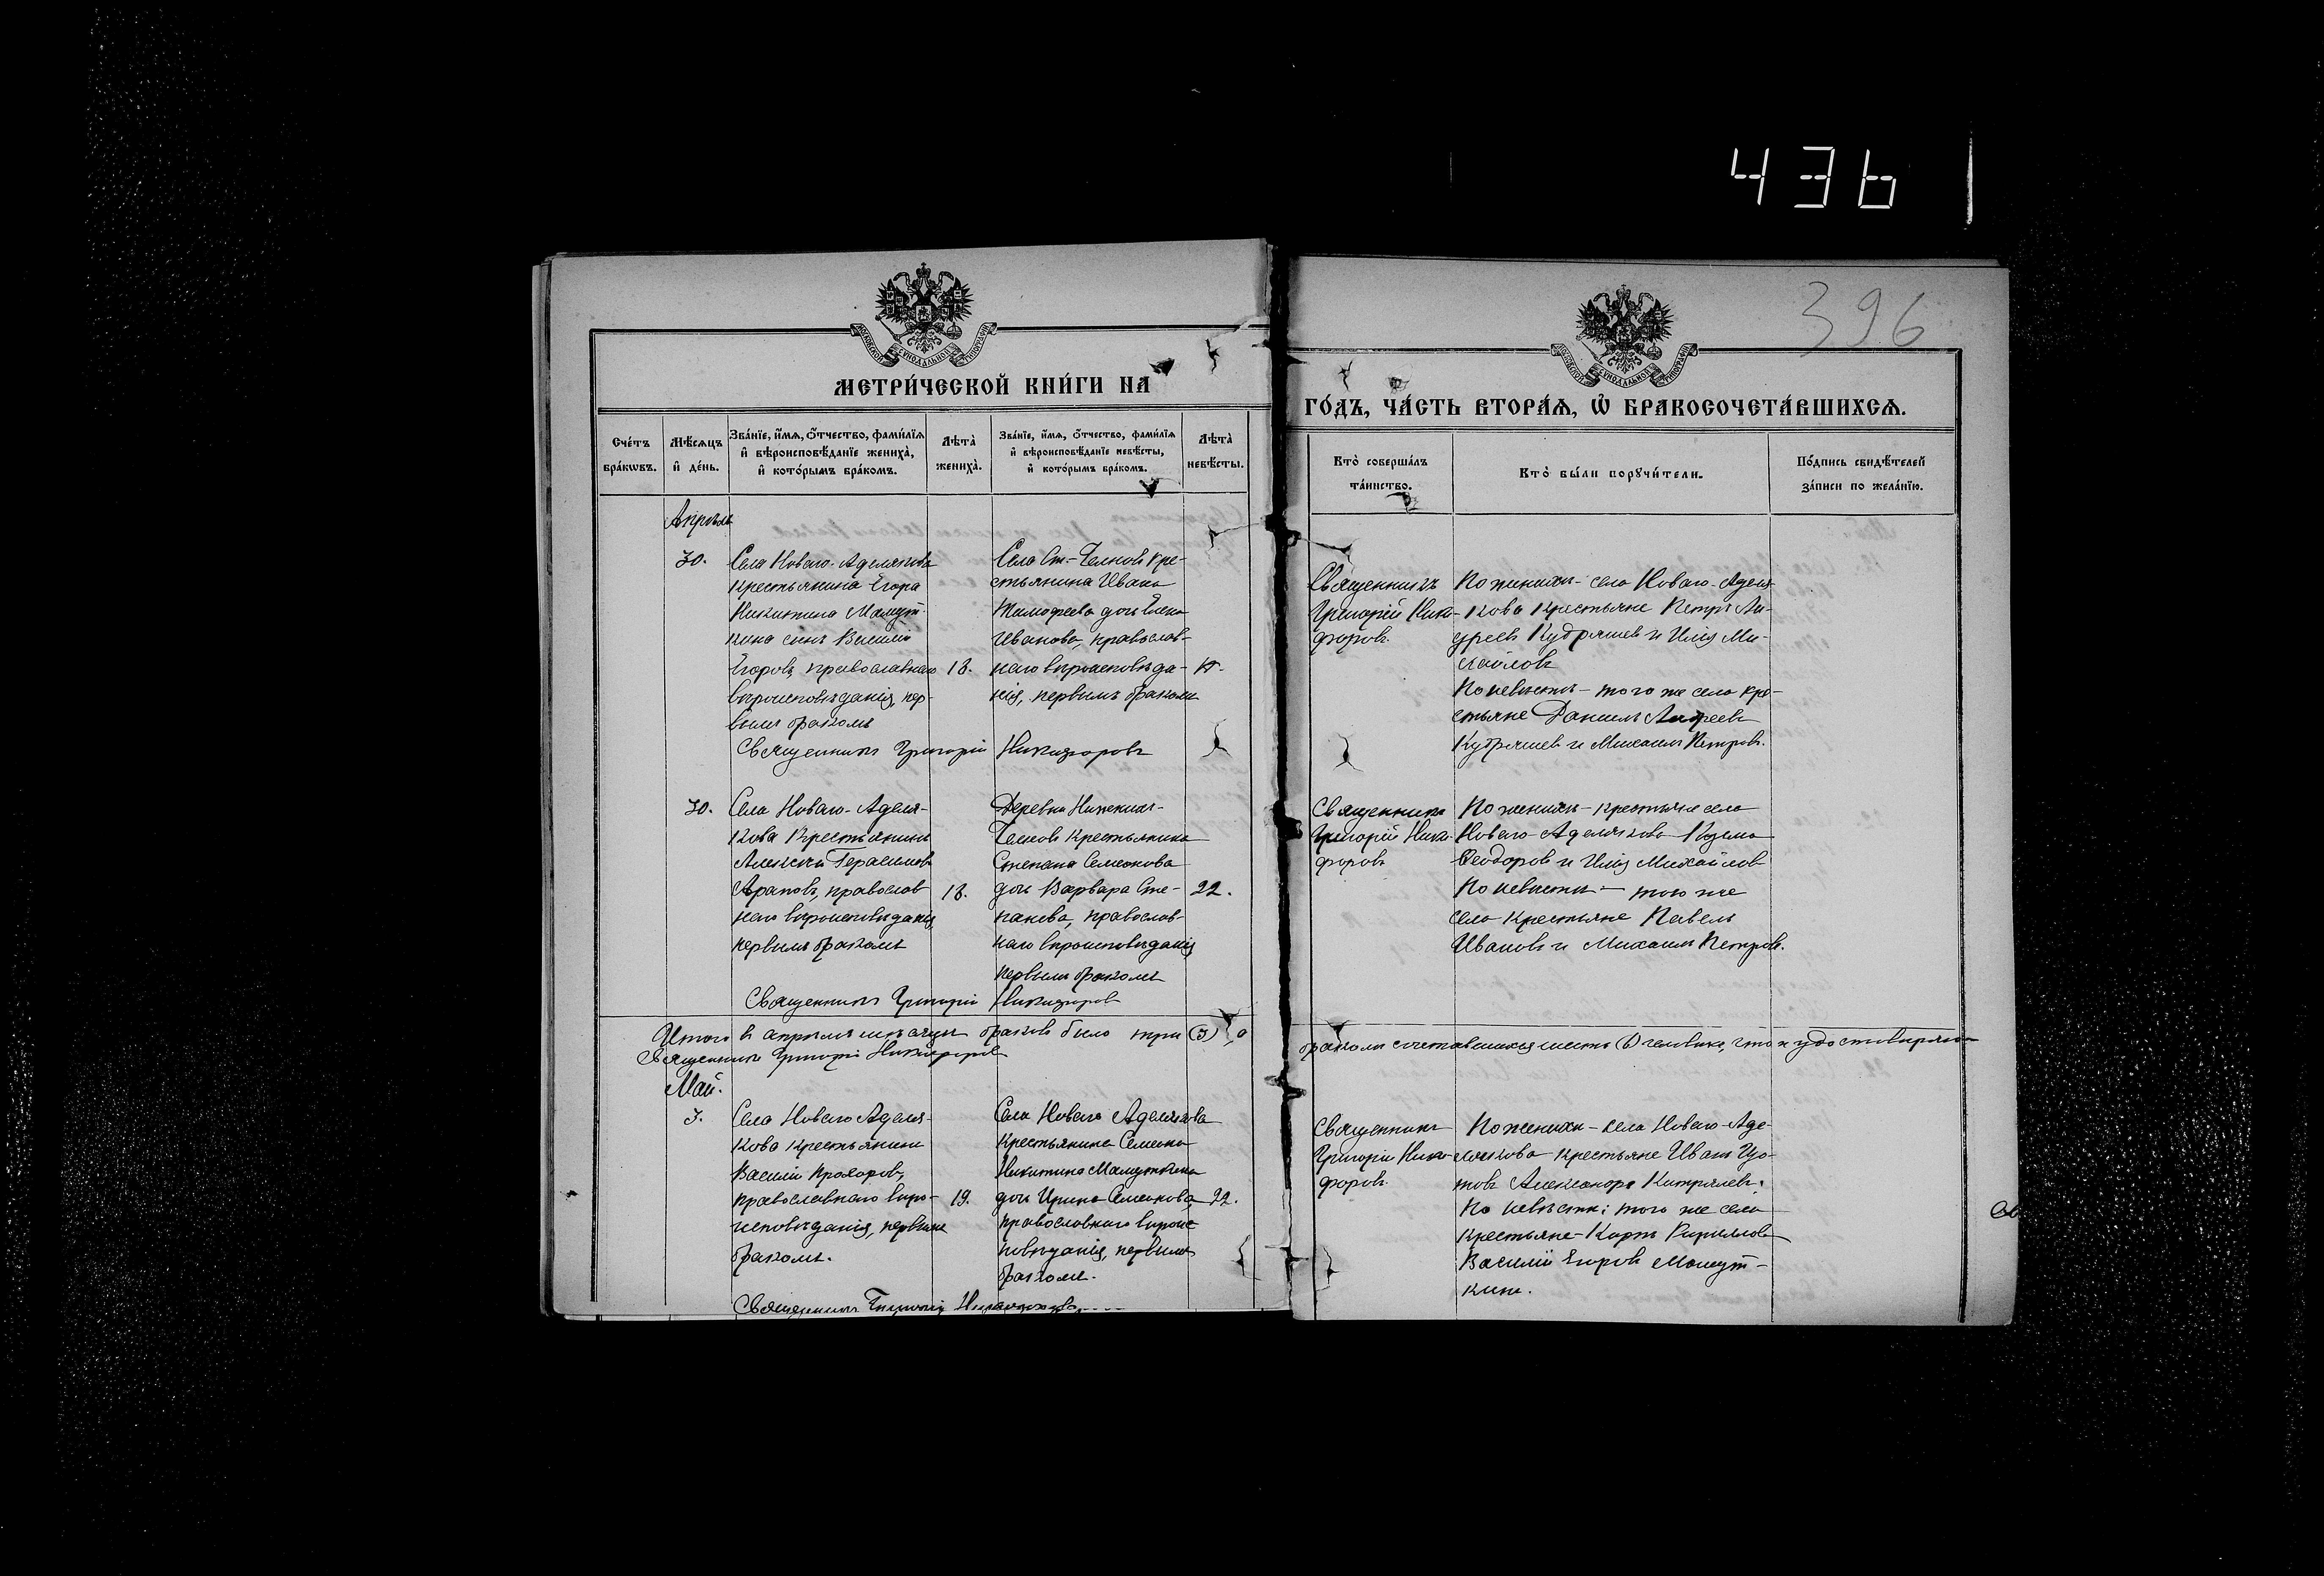 436
396
МЕТРИ́ЧЕСКОЙ КНИ́ГИ НА
ГО́ДЪ, ЧА́СТЬ ВТОРА́Я, Ѡ БРАКОСОЧЕТА́ВШИХСЯ.
Сче́тъ бра́кѡвъ.
Мѣ́сяцъ и де́нь.
Зва́нїе, и́мя, ѻ́тчество, фами́лїя
и вѣроисповѣ́данїе жениха̀,
и кото́рымъ бра́комъ.
Лѣта̀ жениха̀.
Зва́нїе, и́мя, ѻ́тчество, фами́лїя
и вѣроисповѣ́данїе невѣ́сты,
и кото́рымъ бра́комъ.
Лѣта̀ невѣ́сты.
Кто̀ соверша́лъ та́инство.
Кто̀ бы́ли порꙋчи́тели.
По́дпись свидѣ́телей за́писи по жела́нїю.
Апрѣль
30.
Села Новаго-Аделякова
крестьянина Егора
Никитина
сынъ Василій
Егоровъ, православнаго 18.
вѣроисповѣданія, пер-
вымъ бракомъ
Села Ст.-Челновъ кре-
стьянина Ивана
Тимофеева дочь Елена
Иванова, православ-
наго вѣроисповѣда-
нія, первымъ бракомъ
Священникъ Григорій Никифоровъ
Священникъ
Григорій Ники-
форовъ.
По женихѣ - села Новаго-Аделя-
кова крестьяне Петръ Ан-
дреевъ Кудряшев и Илія Ми-
хайловъ
По невѣстѣ - того же села кре-
стьяне Даніилъ Андреевъ
Кудряшев и Михаилъ Петровъ.
30.
Села Новаго-Аделя-
кова крестьянинъ
Алексѣй Герасимовъ
Араповъ, православ- 18.
наго вѣроисповѣданія,
первымъ бракомъ
Деревни Нижнихъ-
Челновъ крестьянина
Степана Семенова
дочь Варвара Сте- 22.
панова, православ-
наго вѣроисповѣданія,
первымъ бракомъ
Священникъ Григорій Никифоровъ
Священникъ
Григорій Ники-
форовъ
По женихѣ - крестьяне села
Новаго-Аделякова Козма
Ѳеодоровъ и Илія Михайлов
По невѣстѣ - того же
села крестьяне Павелъ
Ивановъ и Михаилъ Петровъ.
Итого въ апрѣлѣ мѣсяцѣ браковъ было три (3), а
бракомъ сочетавшихся шесть (6) человѣкъ, что и удостовѣряю
Священникъ Григорій Никифоровъ
Май.
3.
Села Новаго Аделя-
кова крестьянинъ
Василій Прохоровъ,
православнаго вѣро- 19.
исповѣданія, первымъ
бракомъ.
Села Новаго Аделякова
крестьянина Семена
Никитина
дочь Ирина Семенова, 22.
православнаго вѣроис-
повѣданія, первымъ
бракомъ.
Священникъ Григорій Никифоровъ
Священникъ
Григорій Ники-
форовъ.
По женихѣ - села Новаго-Аде-
лякова крестьяне Иванъ
Александръ
По невѣстѣ: того же села
крестьяне - Карпъ Кирилловъ
Василій Егоровъ